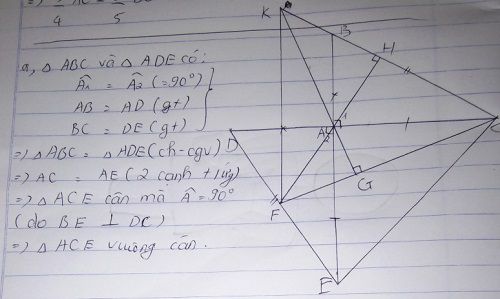 a, △ ABC và △ ADE có:
Â1 = Â2 (=90°)
AB = AD (gt)
BC = DE (gt)
=) △ ABC = △ ADE (ch-cgv)
=) AC = AE (2 cạnh tứ)
=) △ ACE cân mà Â = 90°
(do BE ⊥ DC)
=) △ ACE vuông cân.
K
B
H
D
A
1
2
G
F
E